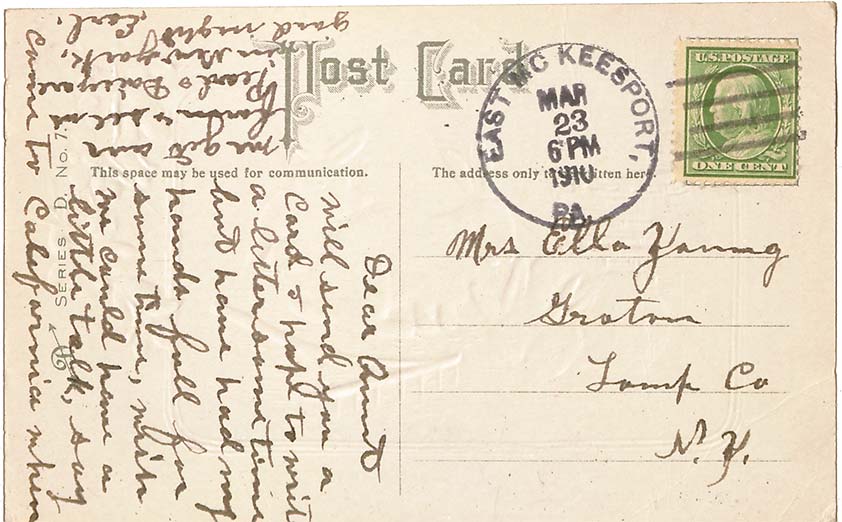 Post Card
This space may be used for communication.
The address only to be written here.
SERIES D. No. 7.
EAST MC KEESPORT,
MAR
23
6 PM
1910
PA.
U.S. POSTAGE
ONE CENT
Mrs Ella Young
Groton
Tomp Co
N. Y.
Dear Aunt
will send you a
Card & hope to write
a letter some time
but have had my
hands full for
some time, wish
we could have a
little talk, say
come to California when
we get our
Pearl &
in New York,
good night Earl.